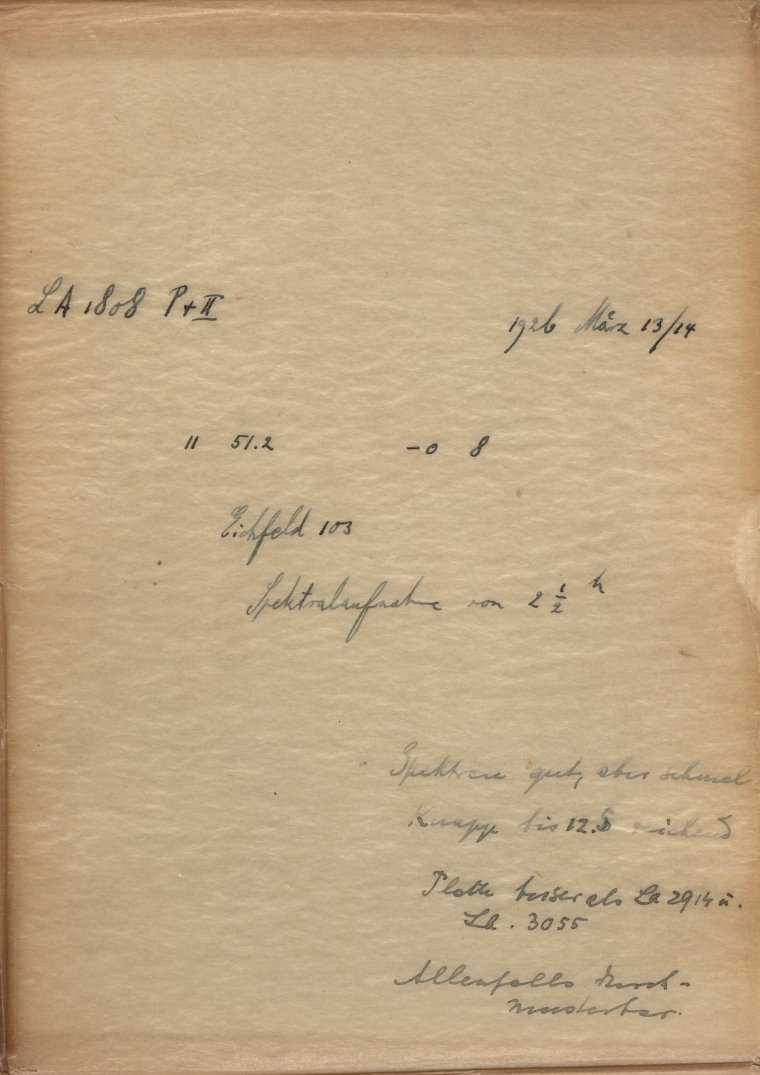 LA 1808 P+II
1926 März 13/14
11 51.2 -0 8
Eichfeld 103
Spektralaufnahme von 2 1/2 h
Spektren gut, aber schmal
Knapp bis 12.5 reichend
Platte besser als La 2914 u.
La. 3055
Allenfalls durch-
musterbar.